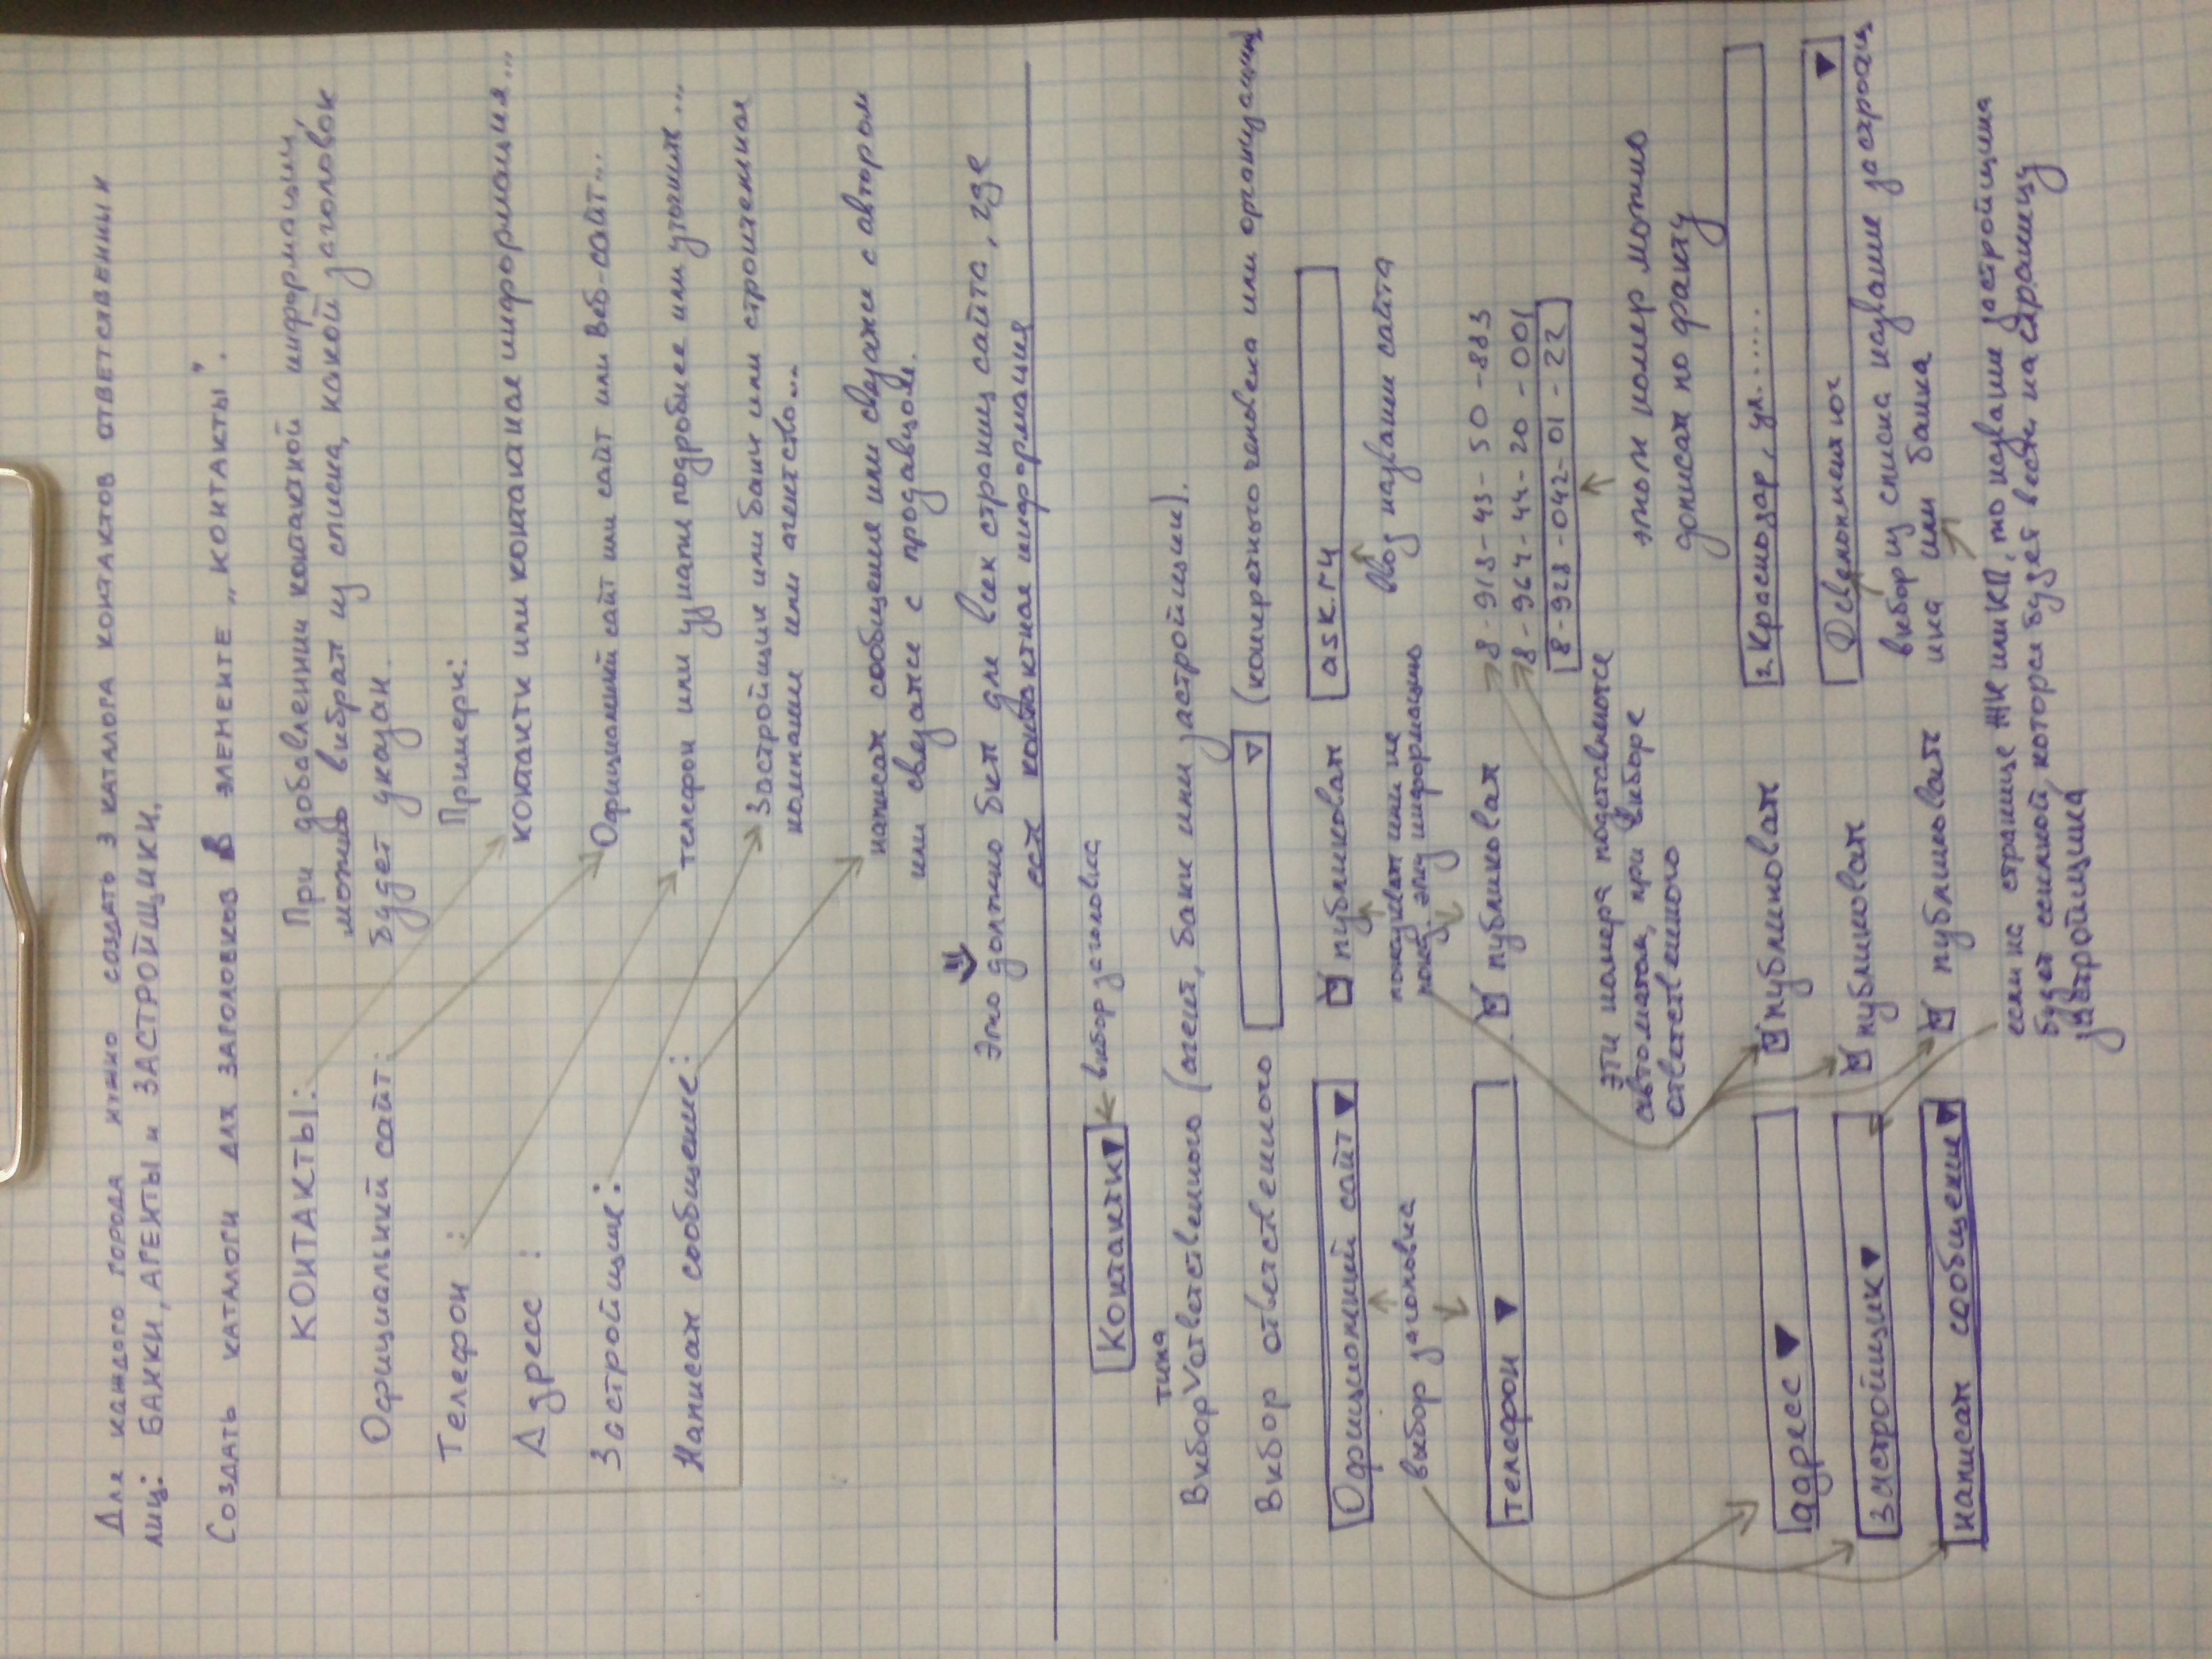 Для каждого города нужно создать 3 каталога контактов ответственных
лиц: БАНКИ, АГЕНТЫ и ЗАСТРОЙЩИКИ.
Создать каталоги для заголовков в элементе „КОНТАКТЫ".
КОНТАКТЫ:
Официальный сайт:
Телефон :
Адресс :
Застройщик:
Написать сообщение:
При добавлении контактной информации,
можно выбрать из списка, какой заголовок
будет указан.
Примеры:
контакты или контактная информация...
Официальный сайт или сайт или Веб-сайт...
телефон или узнать подробнее или уточнить...
Застройщик или банк или строительная
компания или агентство...
написать сообщение или связаться с автором
или связаться с продавцом.
Это должно быть для всех страниц сайта, где
есть контактная информация
Контакты ▼ ← выбор заголовка
типа
Выбор ∨ ответственного (агент, банк или застройщик).
Выбор ответственного ▽ (конкретного человека или организации)
Официальный сайт ▼ ☑ публиковать ask.ru
выбор заголовка
показывать или не
показ. эту информацию
ввод названия сайта
телефон ▼ ☑ публиковать
8-918-43-50-883
8-964-44-20-001
8-928-042-01-22
эти номера подставляются
автоматом, при выборе
ответственного
этот номер можно
дописать по факту
адресс ▼ ☑ публиковать г. Краснодар, ул......
застройщик ▼ ☑ публиковать Девелопмент юг ▼
выбор из списка название застройщ
ика или банка
написать сообщение ▼ ☑ публиковать
если на странице ЖК или КП, то название застройщика
будет ссылкой, которая будет вести на страницу
застройщика